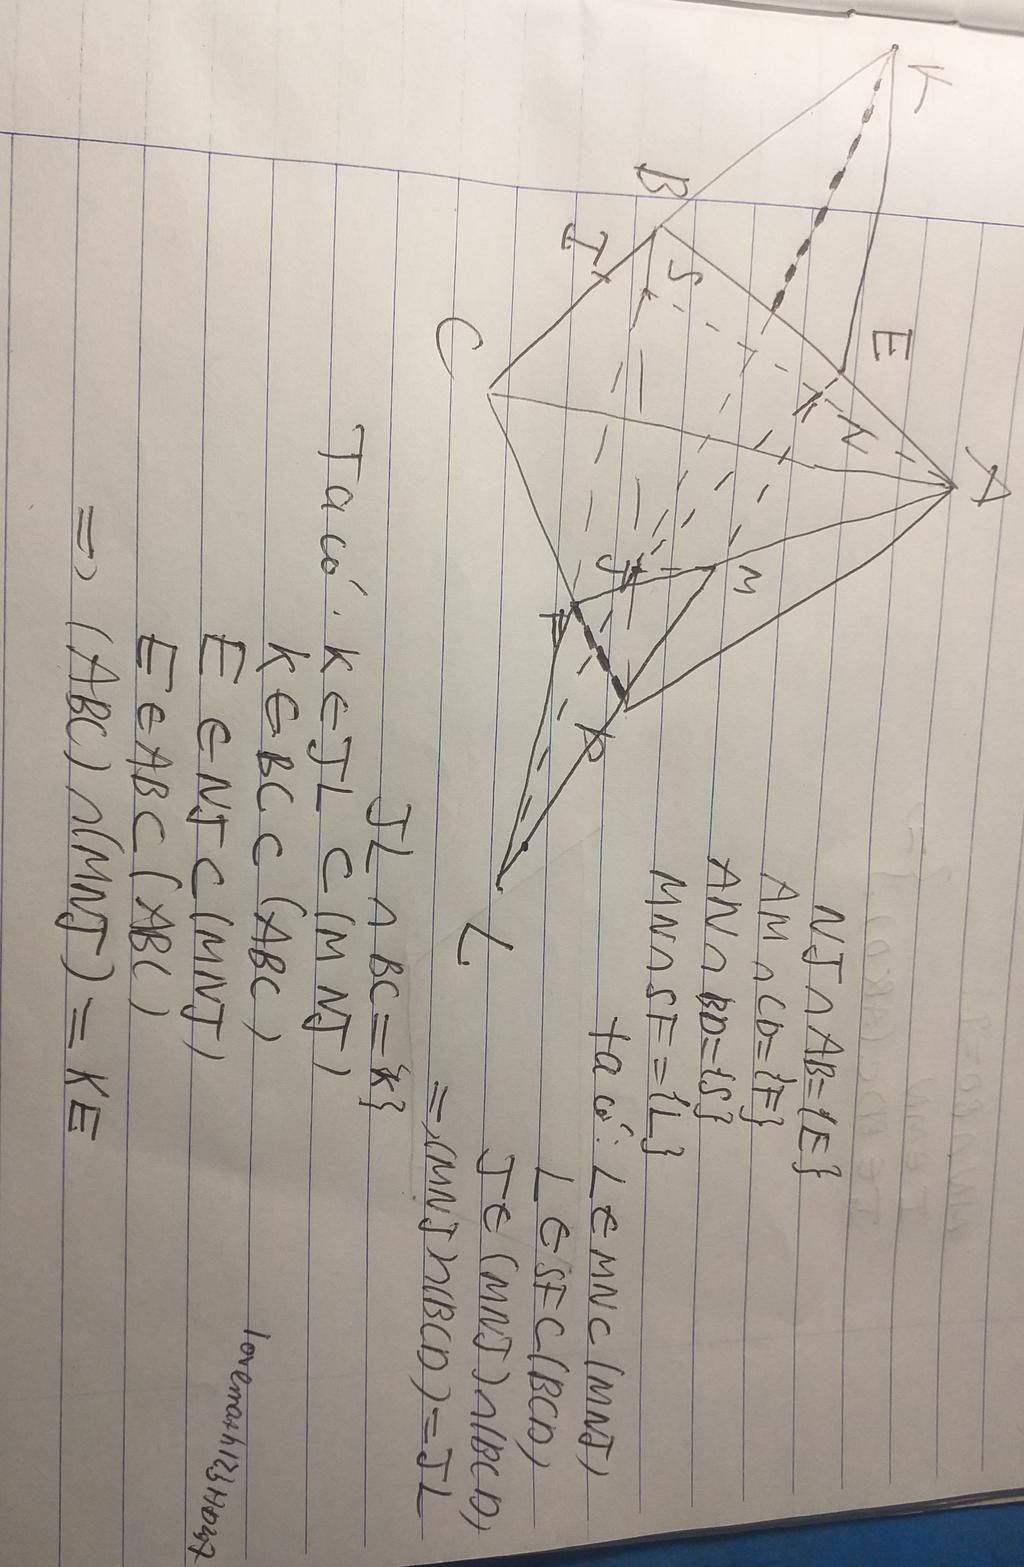 K
B
I
S
E
N
A
C
J
M
F
D
L
NJ ∩ AB = {E}
AM ∩ CD = {F}
AN ∩ BD = {S}
MN ∩ SF = {L}
ta có: L ∈ MN ⊂ (MNJ)
L ∈ SF ⊂ (BCD)
J ∈ (MNJ) ∩ (BCD)
=> (MNJ) ∩ (BCD) = JL
JL ∩ BC = {K}
Ta có: K ∈ JL ⊂ (MNJ)
K ∈ BC ⊂ (ABC)
E ∈ NJ ⊂ (MNJ)
E ∈ ABC (ABC)
=> (ABC) ∩ (MNJ) = KE